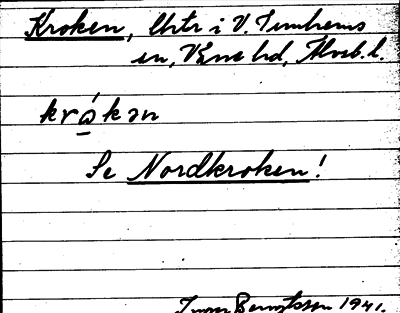 Kroken, Uhtr i V. Tunhems
sn, Väne hd, Älvsb. l.
krǻkən
Se Nordkroken!
Ivar Bengtsson 1941.